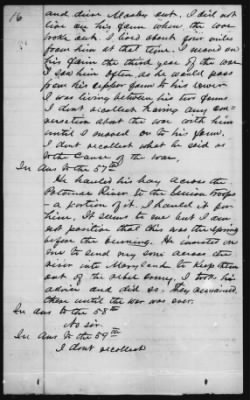 16
and drive Mosby out. I did not
live on his farm when the war
broke out. I lived about four miles
from him at that time. I moved on
his farm the third year of the war
I saw him often, as he would pass
from his upper farm to his lower
I was living between his two farms
I dont recollect having any con-
versation about the war with him
until I moved on to his farm.
I dont recollect what he said as
to the cause of the war.
In Ans to the 57th
He hauled his hay across the
Potomac River to the Union troops
- a portion of it. I hauled it for
him. It seems to me but I am
not positive that this was the spring
before the burning. He insisted on
me to send my sons across the
river into Maryland to keep them
out of the rebel army, I took his
advice and did so. They remained
there until the war was over.
In ans to the 58th
No sir.
In Ans to the 59th
I dont recollect